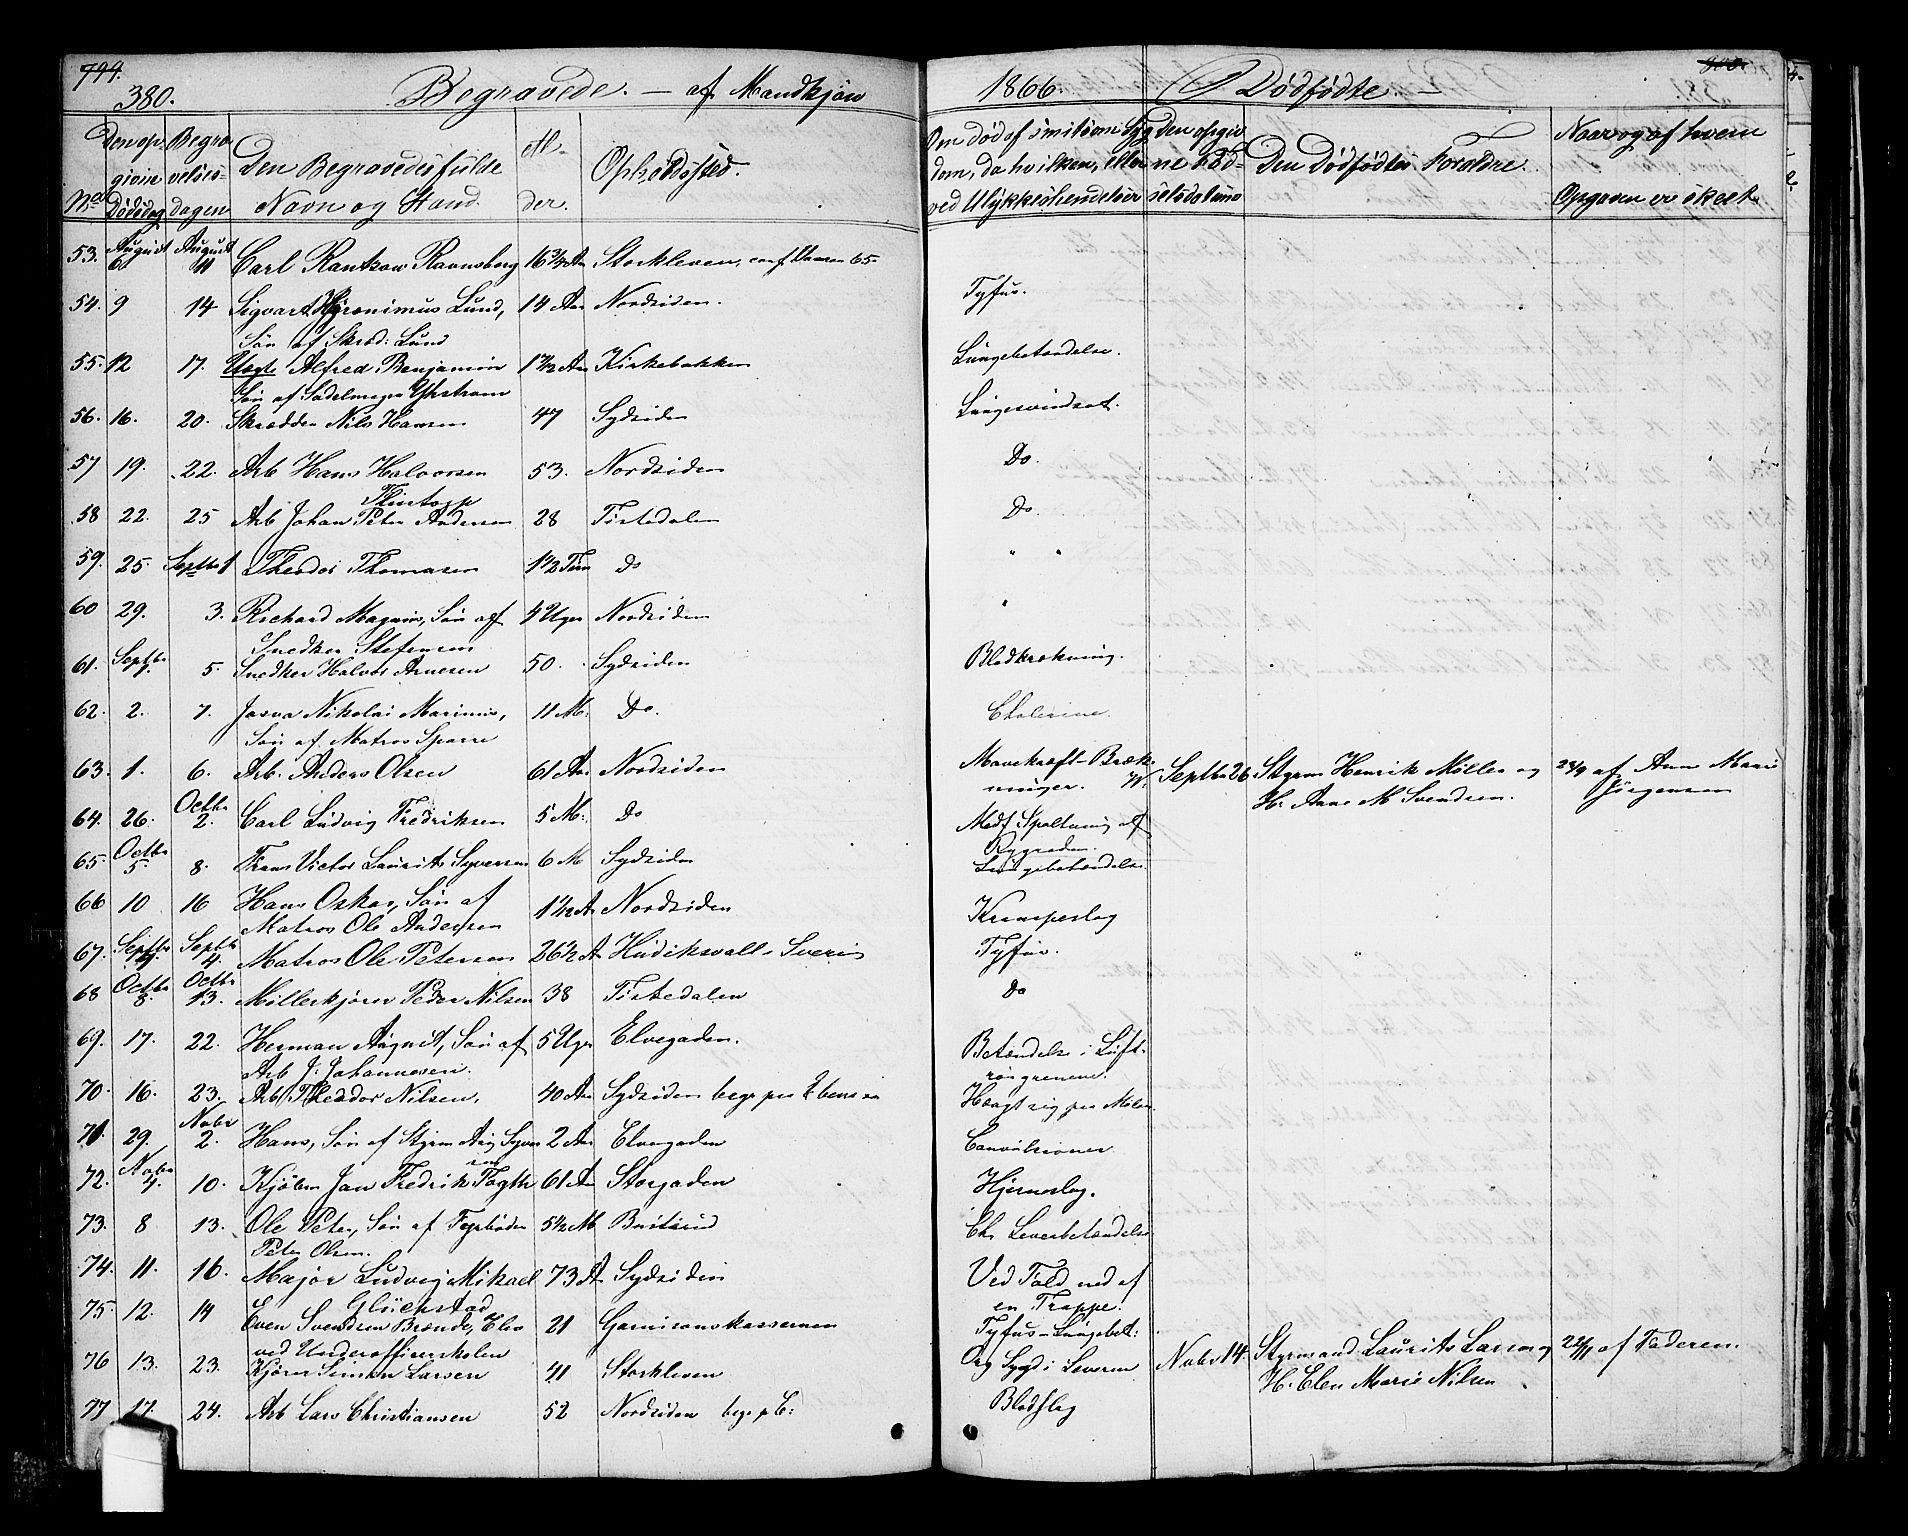 799.
380. Begravede. — af Mandkjøn 1866. Dødfødte. —
Den op- givne Dødsdag
Begra- velses- dagen
Den Begravedes fulde Navn og Stand.
Al- der.
Opholdssted.
Om død af smitsom Syg dom, da hvilken, eller ved Ulykkeshendelser
Den opgiv ne Fød- selsdatum
Den Dødfødtes Forældre.
Naar og af hvem Opgaven er skeet.
53. August 6. August 11 Carl Rantzow Ravnsborg 16 3/4 Aar Storkleven, conf. Vaaren 65.
54. 9 14 Sigvart Hyronimus Lund, 14 Aar Nordsiden. Tyfus.
Søn af Skræd: Lund
55. 12 17. Uægte Alfred Benjamin 1 1/2 Aar Kirkebakken Lungebetændelse.
Søn af Sadelmager
56. 16. 20. Skrædder Nils Hansen 47 Sydsiden Lungesvindsot.
57 19. 22. Arb Hans Halvorsen 53. Nordsiden Do.
58 22. 25 Arb Johan Peter Andersen 28 Tistedalen Do.
59. 25. Septbr 1 Theodor Thomasen 1 1/2 Tim Do " "
60 29. 3. Richard Magnus, Søn af 4 Uger Nordsiden "
Snedker Stefensen
61. Septbr 1. 5. Snedker Halvor Arnesen 50. Sydsiden Blodbrækning.
62. 2. 7. Nikolai Marinus, 11 M: Do. Cholerine.
Søn af Matros Sparre
63. 1. 6. Arb. Anders Olsen 61 Aar Nordsiden Mavekræft-Bræk- ninger. Septbr 26 Styrm Henrik Møller og af Anne Marie
H: Anne M Svendsen. Jørgensen
64. 26. Octbr 2. Carl Ludvig Fredriksen 5 M: Do Medf Spaltning af
Rygraden.
65. Octbr 5. 8. Frans Victor Laurits Syversen 6 M Sydsiden Lungebetændelse
66 10 16 Hans Oskar, Søn af 1 1/2 A Nordsiden Krampeslag
Matros Ole Andersen
67. Septbr Septbr 4. Matros Ole Petersen 26 1/2 A Hudiksvall i Sverig Tyfus.
68 Octbr 8. Octbr 13. Møllerkjører Peder Nilsen 38 Tistedalen Do
69. 17. 22. Herman August, Søn af 5 Uger Elvegaden. Betændelse i Luft-
Arb J. Johannesen. rørgrenene.
70. 16. 23. Arb Theodor Nilsen, 40 Aar Sydsiden Hængt sig
71. 29. Novbr 2. Hans, Søn af Styrm Syver 2 Aar Elvegaden Convulsioner
sen
72. Novbr 4. 10. Kjøbm Jan Fredrik 61 Aar Storgaden Hjerneslag.
73. 8 13. Ole Peter, Søn af Fyrbøder 5 1/2 M Leverbetændelse
Peter Olsen.
74. 11. 16. Major Ludvig Mikael 73 A Sydsiden Ved Fald ned af
Glückstad en Trappe.
75. 12. 19 Even Svendsen Brænde, Elev 21 Garnisonskassernen Tyfus-Lungebet:
ved Underofficerskolen
76 13. 23. Kjører Simon Larsen 41 Storkleven Org Sygd i Leveren Novbr 14. Styrmand Laurits Larsen og af Faderen.
H: Elen Marie Nilsen
77 17. 24. Arb Lars Christiansen 52 Nordsiden Blodslag